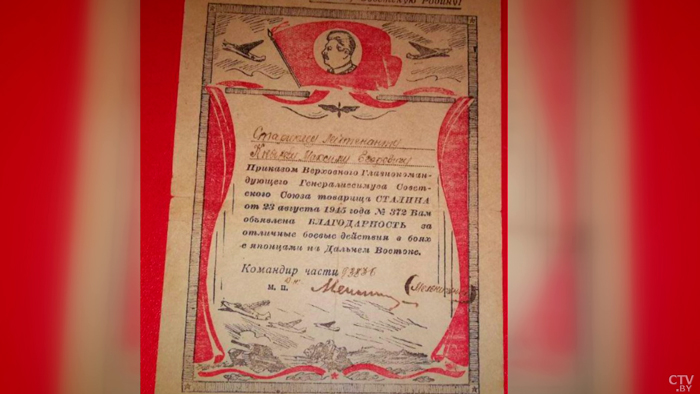 Советскую Родину!
Старшему лейтенанту
Максиму Егоровичу
Приказом Верховного Главнокоман-
дующего Генералиссимуса Совет-
ского Союза товарища СТАЛИНА
от 23 августа 1945 года № 372 Вам
объявлена БЛАГОДАРНОСТЬ за
отличные боевые действия в боях
с японцами на Дальнем Востоке.
Командир части
м. п.
CTV
.BY